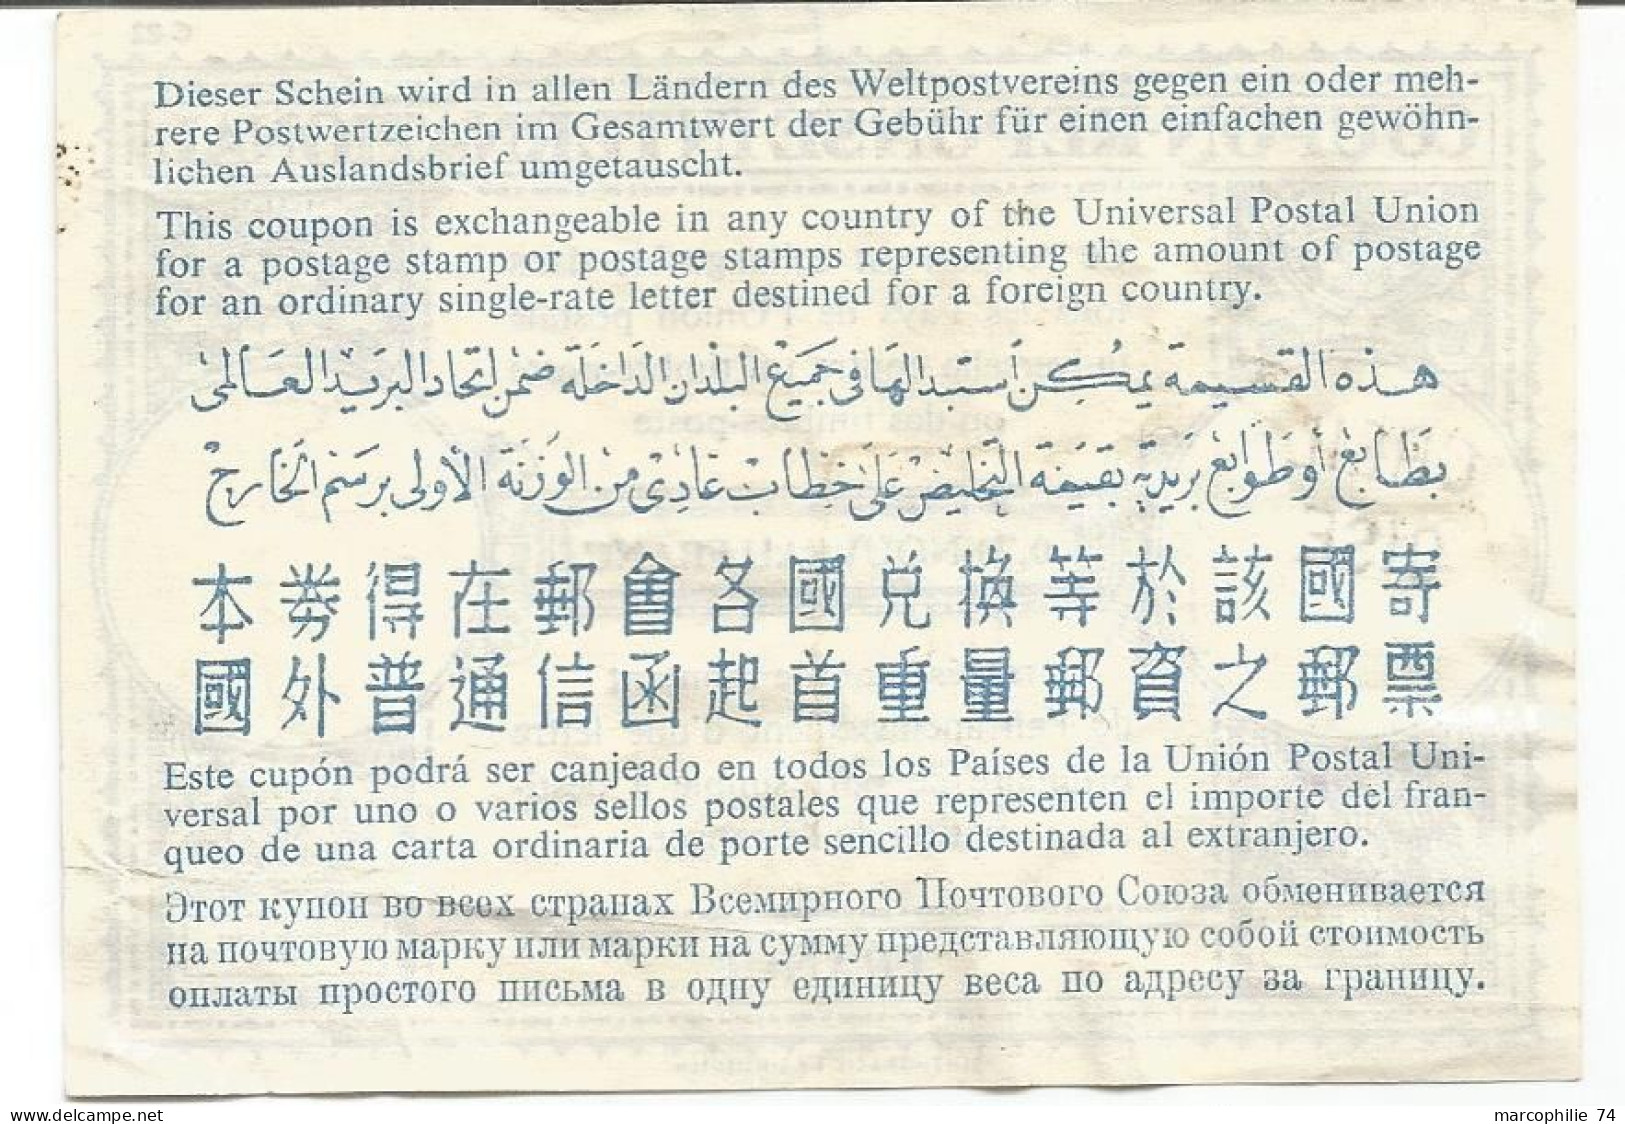 Dieser Schein wird in allen Ländern des Weltpostvereins gegen ein oder meh-
rere Postwertzeichen im Gesamtwert der Gebühr für einen einfachen gewöhn-
lichen Auslandsbrief umgetauscht.
This coupon is exchangeable in any country of the Universal Postal Union
for a postage stamp or postage stamps representing the amount of postage
for an ordinary single-rate letter destined for a foreign country.
هذه القسيمة يمكن أستبدالها في جميع البلدان الداخلة ضمن اتحاد البريد العالمي
بطابع أو طوابع بريدية بقيمة التخليص على خطابات عادى من الوزنة الأولى برسم الخارج
本券得在郵會各國兌換等於該國寄
國外普通信函起首重量郵資之郵票
Este cupón podrá ser canjeado en todos los Países de la Unión Postal Uni-
versal por uno o varios sellos postales que representen el importe del fran-
queo de una carta ordinaria de porte sencillo destinada al extranjero.
Этот купон во всех странах Всемирного Почтового Союза обменивается
на почтовую марку или марки на сумму представляющую собой стоимость
оплаты простого письма в одну единицу веса по адресу за границу.
marcophilie 74
www.delcampe.net